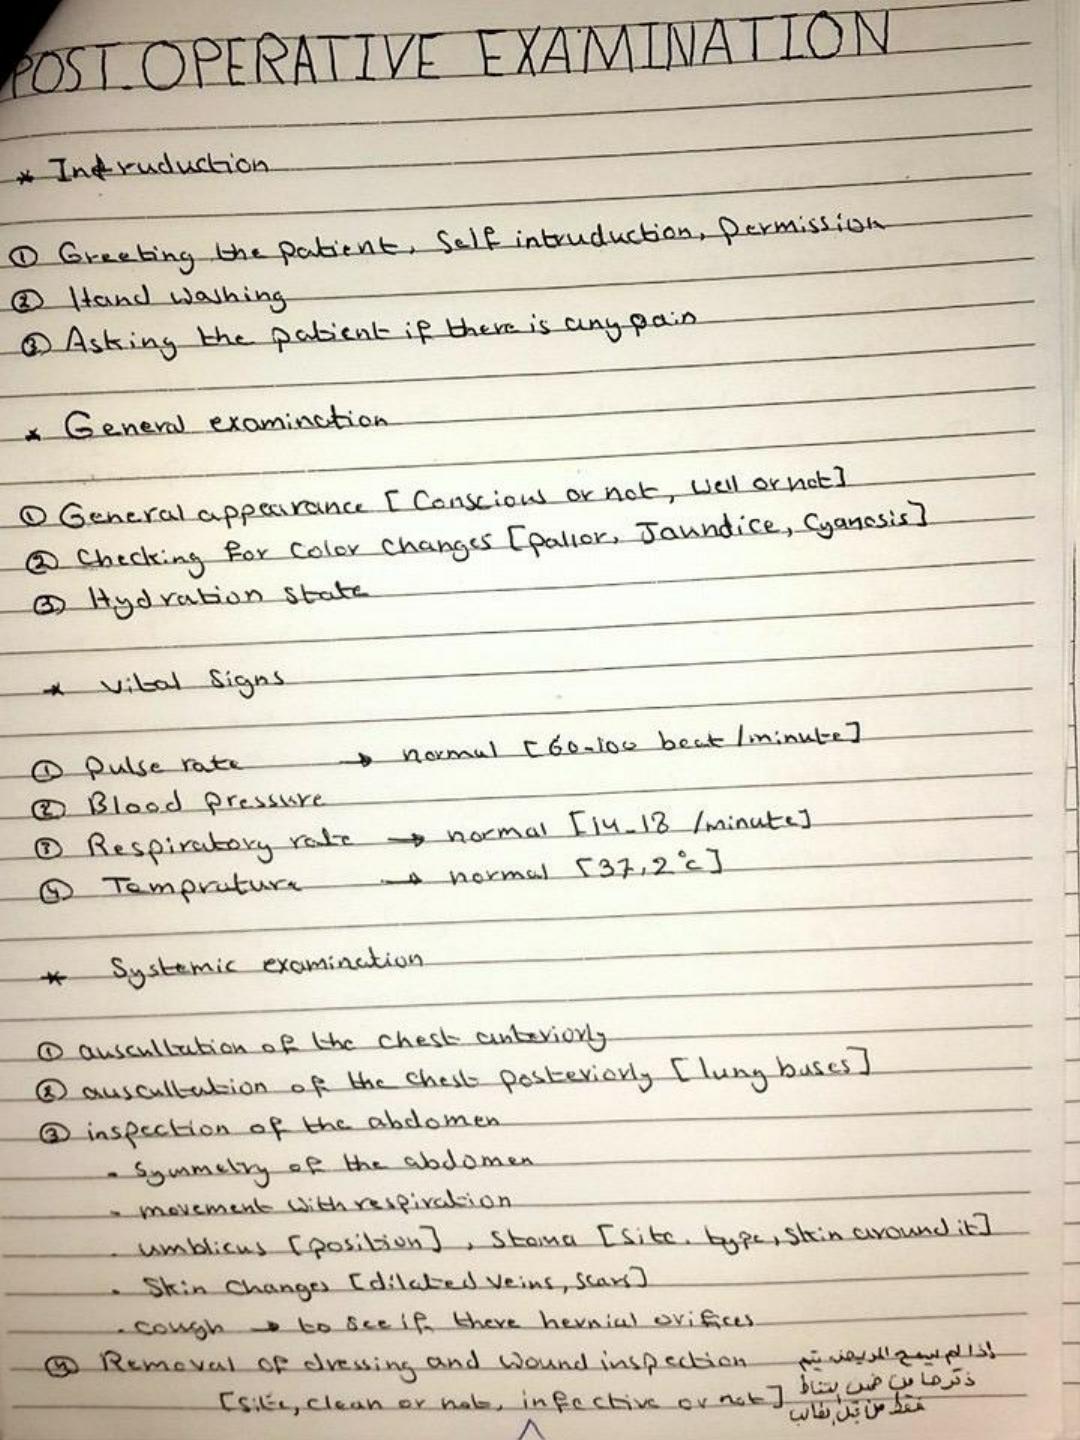 POST.OPERATIVE EXAMINATION
* Intruduction
① Greeting the patient, Self intruduction, permission
② Hand washing
③ Asking the patient if there is any pain
* General examination
① General appearance [Conscious or not, well or not]
② Checking for Color changes [pallor, Jaundice, Cyanosis]
③ Hydration State
* Vital Signs
① Pulse rate → normal [60-100 beat/minute]
② Blood pressure
③ Respiratory rate → normal [14-18 /minute]
④ Temprature → normal [37,2°c]
* Systemic examination
① auscultation of the chest anteriorly
② auscultation of the chest posteriorly [lung bases]
③ inspection of the abdomen
- Symmetry of the abdomen
- movement with respiration
- umblicus [position], stoma [site, type, skin around it]
- Skin Changes [dilated veins, scars]
- cough → to see if there hernial orifices
④ Removal of dressing and wound inspection
إذا لم يسمح المريض يتم
[site, clean or not, infective or not]
ذكرها من ضمن النقاط
فقط من قبل الطالب